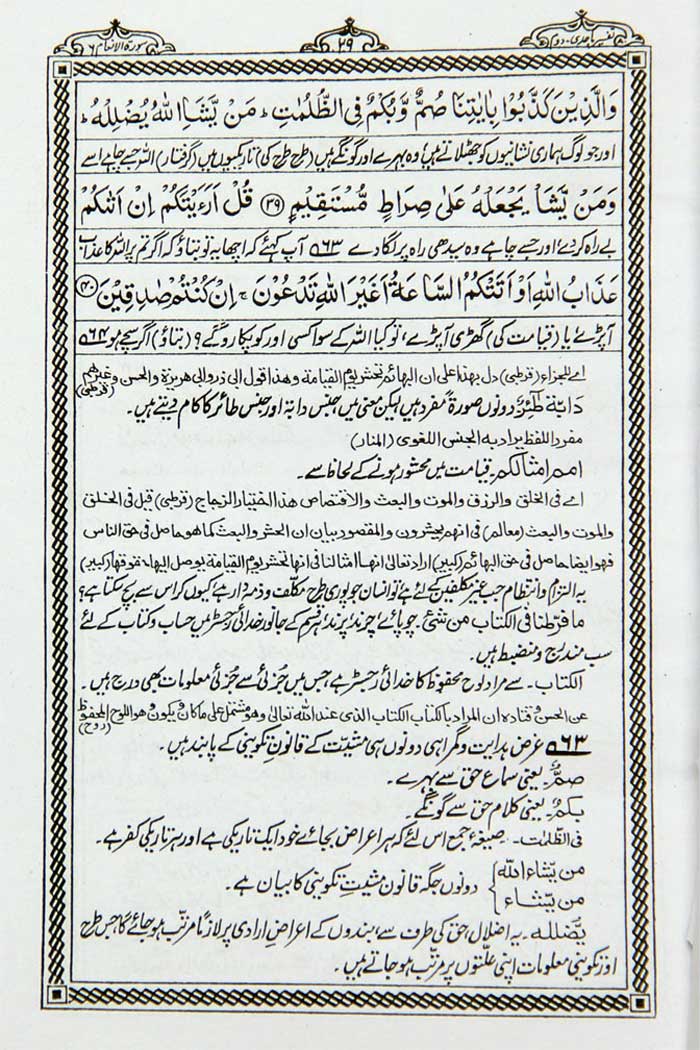 تفسیر ماجدی۔ دوم
۲۹
سورۃ الانعام ۶
وَالَّذِیْنَ كَذَّبُوْا بِاٰیٰتِنَا صُمٌّ وَّبُكْمٌ فِی الظُّلُمٰتِ ؕ مَنْ یَّشَاِ اللّٰهُ یُضْلِلْهُ ؕ
اور جو لوگ ہماری نشانیوں کو جھٹلاتے ہیں، وہ بہرے اور گونگے ہیں (طرح طرح کی) تاریکیوں میں (گرفتار) اللہ جسے چاہے اسے
وَمَنْ یَّشَاْ یَجْعَلْهُ عَلٰی صِرَاطٍ مُّسْتَقِیْمٍ ﴿۳۹﴾ قُلْ اَرَءَیْتَكُمْ اِنْ اَتٰىكُمْ
بے راہ کردے اور جسے چاہے وہ سیدھی راہ پر لگا دے ۵۶۳ آپ کہئے کہ اچھا یہ تو بتاؤ کہ اگر تم پر اللہ کا عذاب
عَذَابُ اللّٰهِ اَوْ اَتَتْكُمُ السَّاعَةُ اَغَیْرَ اللّٰهِ تَدْعُوْنَ ۚ اِنْ كُنْتُمْ صٰدِقِیْنَ ﴿۴۰﴾
آپڑے یا (قیامت کی) گھڑی آپڑے، تو کیا اللہ کے سوا کسی اور کو پکارو گے؟ (بتاؤ) اگر سچے ہو ۵۶۴
اے للجزاء (قرطبی) دل بھذا علی ان البھائم تحشر یوم القیامۃ وھذا قول ابی ذر وابی ھریرۃ والحسن وغیرھم (قرطبی)
دابۃ طٰئر۔ دونوں صورۃً مفرد ہیں لیکن معنی میں جنس دابۃ اور جنس طائر کا کام دیتے ہیں۔
مفرد اللفظ یراد بہ الجنس اللغوی (المنار)
امم امثالکم۔ قیامت میں محشور ہونے کے لحاظ سے۔
اے فی الخلق والرزق والموت والبعث والاقتصاص ھذا اختیار الزجاج (قرطبی) قیل فی الخلق
والموت والبعث (معالم) فی انھم یحشرون والمقصود بیان ان الحشر والبعث کما ھو حاصل فی حق الناس
فھو ایضا حاصل فی حق البھائم (کبیر) اراد تعالی انھا امثالنا فی انھا تحشر یوم القیامۃ یوصل الیھا حقوقھا (کبیر)
یہ التزام و انتظام جب غیر مکلفین کے لئے ہے، تو انسان جو پوری طرح مکلّف و ذمہ دار ہے، کیوں کر اس سے بچ سکتا ہے؟
ما فرطنا فی الکتاب من شیء۔ چوپائے، چرند، پرند، ہر قسم کے جانور خدائی رجسٹر میں حساب و کتاب کے لئے
سب مندرج و منضبط ہیں۔
الکتاب۔ سے مراد لوح محفوظ کا خدائی رجسٹر ہے، جس میں جزئی سے جزئی معلومات بھی درج ہیں۔
عن الحسن وقتادہ ان المراد بالکتاب الکتاب الذی عند اللہ تعالی وھو مشتمل علی ما کان و یکون وھو اللوح المحفوظ (روح)
۵۶۳ غرض ہدایت و گمراہی دونوں ہی مشیّت کے قانونِ تکوینی کے پابند ہیں۔
صمٌّ یعنی سماعِ حق سے بہرے۔
بکمٌ یعنی کلامِ حق سے گونگے۔
فی الظلمات۔ صیغۂ جمع اس لئے کہ ہر اعراض بجائے خود ایک تاریکی ہے اور ہر تاریکی کفر ہے۔
من یشاء اللہ
من یشاء
دونوں جگہ قانون مشیتِ تکوینی کا بیان ہے۔
یضللہ۔ یہ اضلال حق کی طرف سے، بندوں کے اعراضِ ارادی پر لازماً مرتّب ہوجائے گا جس طرح
اور تکوینی معلومات اپنی علّتوں پر مرتّب ہوجاتے ہیں۔